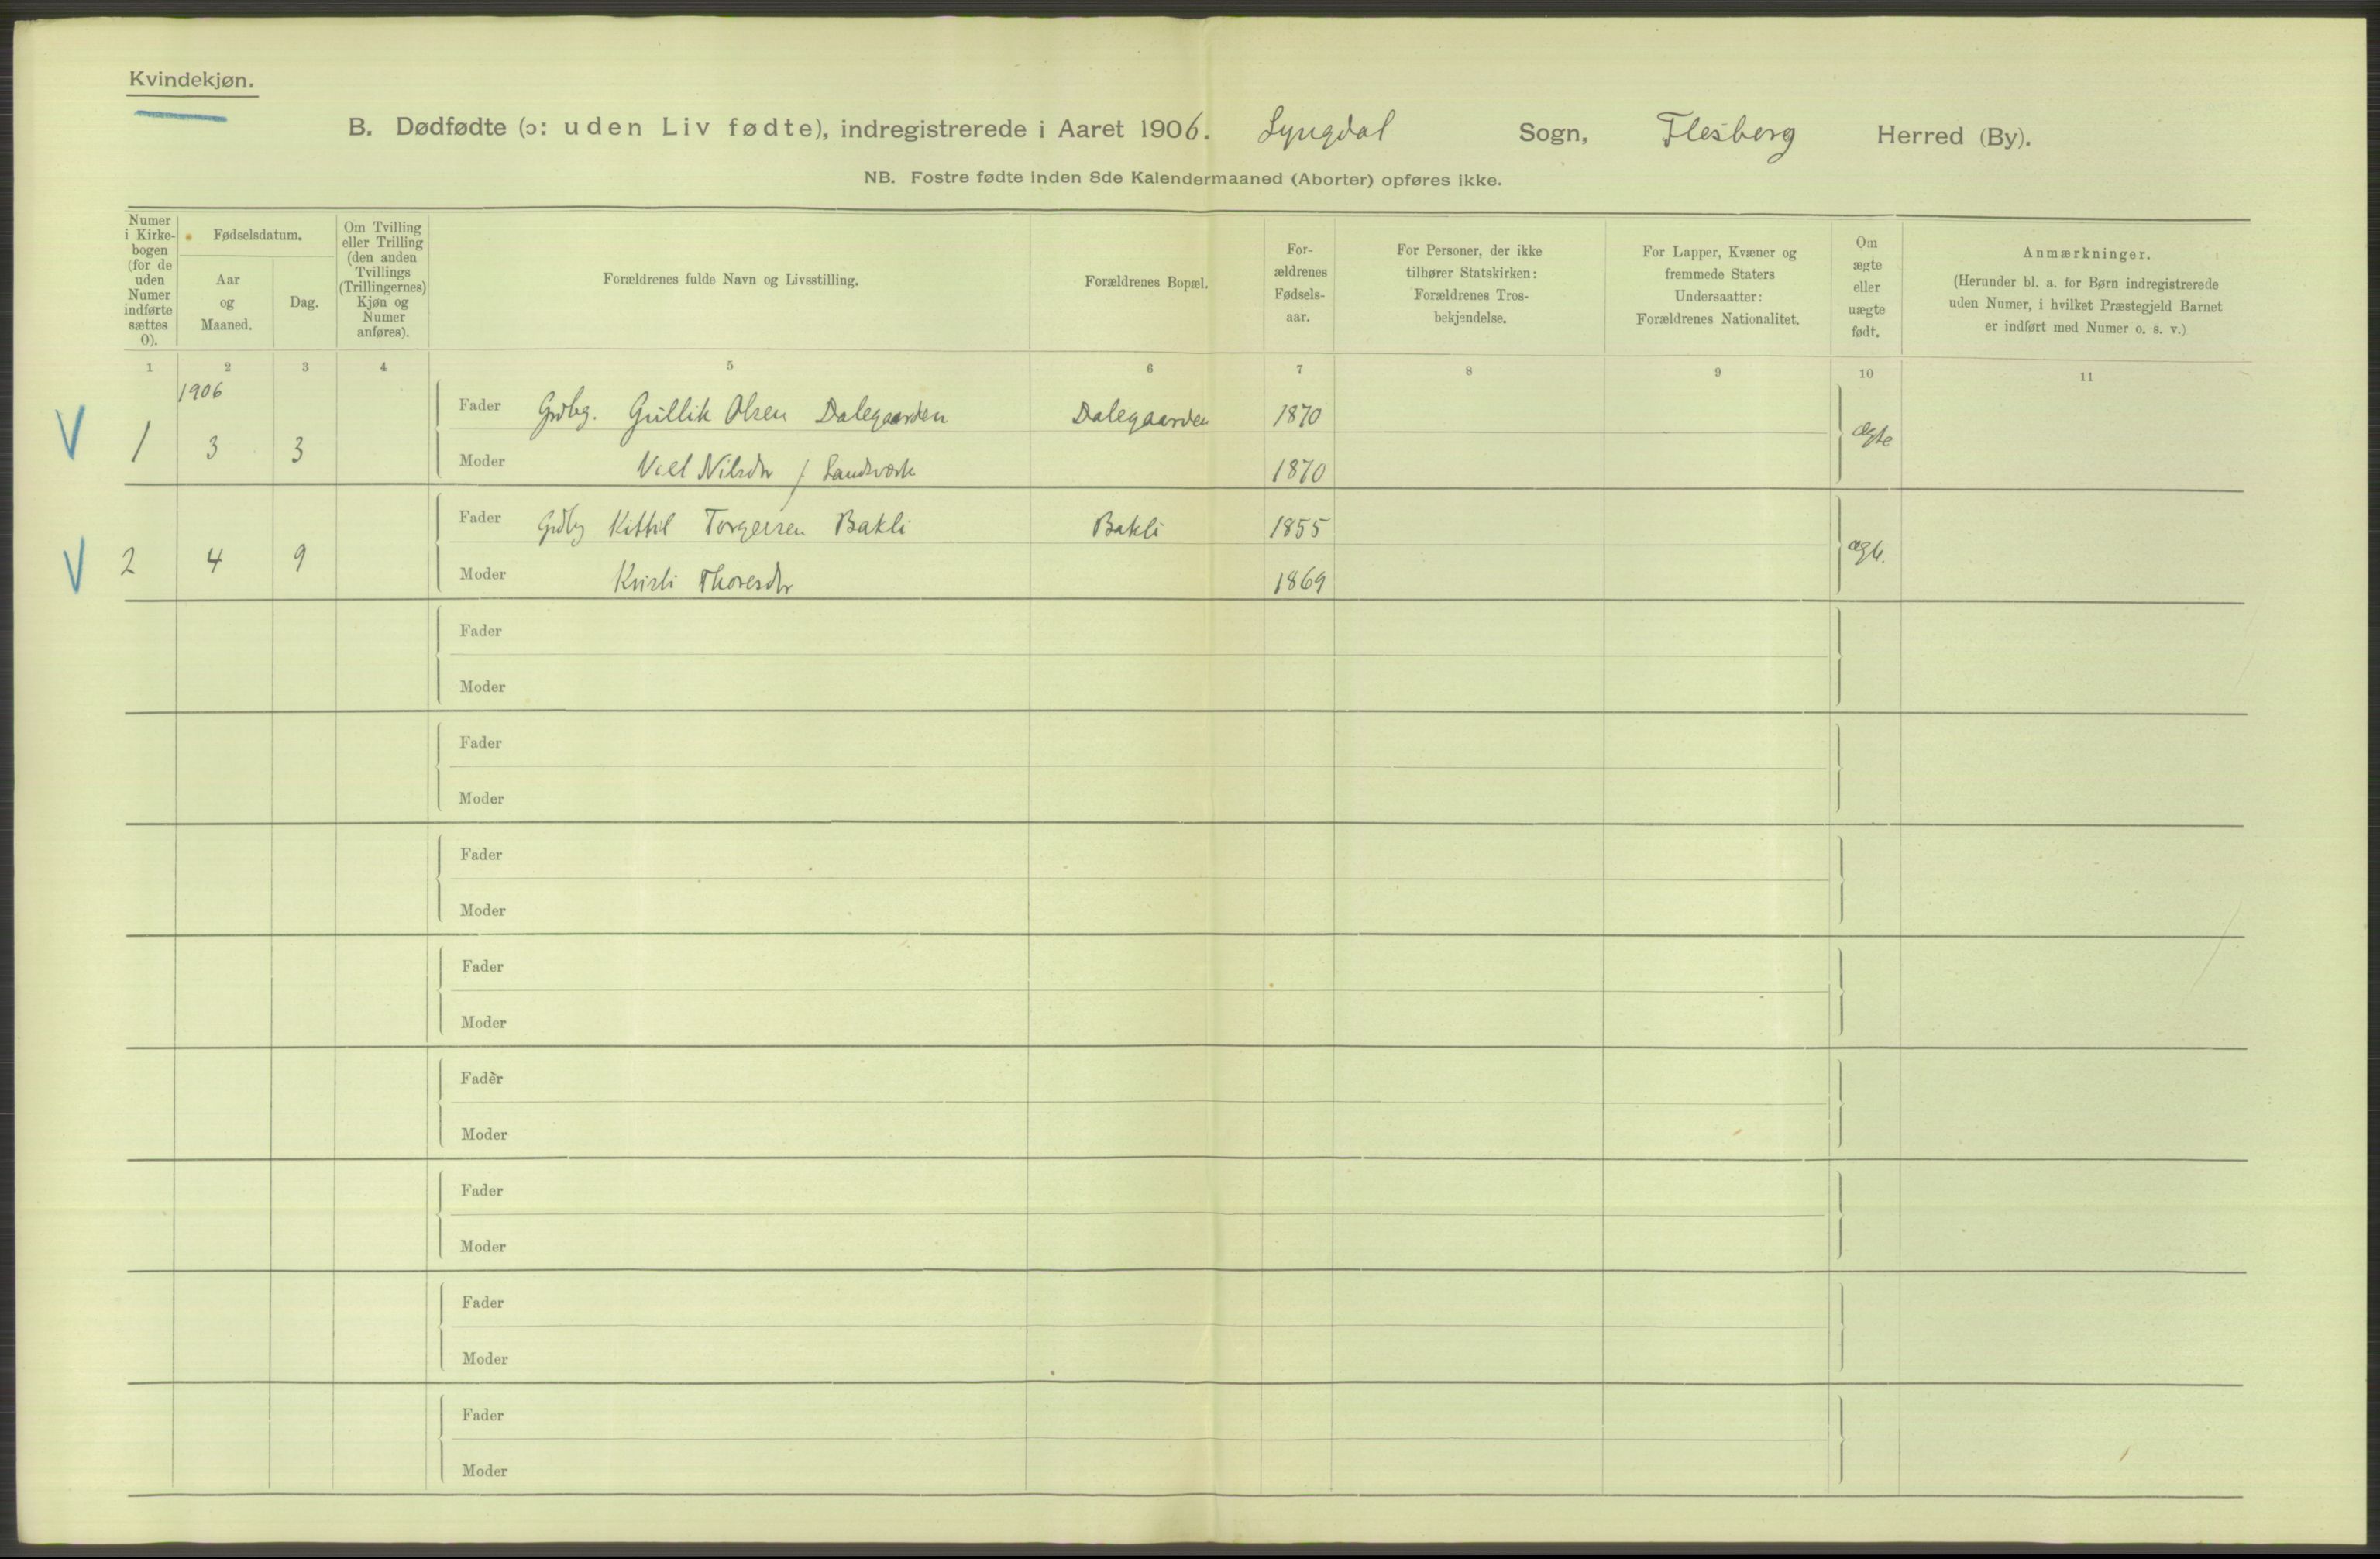 Kvindekjøn.
B. Dødfødte (ɔ: uden Liv fødte), indregistrerede i Aaret 1906. Lyngdal Sogn, Flesberg Herred (By).
NB. Fostre fødte inden 8de Kalendermaaned (Aborter) opføres ikke.
Numer
i Kirke-
bogen
(for de
uden
Numer
indførte
sættes
0).
Fødselsdatum.
Aar
og
Maaned.
Dag.
Om Tvilling
eller Trilling
(den anden
Tvillings
(Trillingernes)
Kjøn og
Numer
anføres).
Forældrenes fulde Navn og Livsstilling.
Forældrenes Bopæl.
For-
ældrenes
Fødsels-
aar.
For Personer, der ikke
tilhører Statskirken:
Forældrenes Tros-
bekjendelse.
For Lapper, Kvæner og
fremmede Staters
Undersaatter:
Forældrenes Nationalitet.
Om
ægte
eller
uægte
født.
Anmærkninger.
(Herunder bl. a. for Børn indregistrerede
uden Numer, i hvilket Præstegjeld Barnet
er indført med Numer o. s. v.)
1 2 3 4 5 6 7 8 9 10 11
1906
Fader Gullik Olsen Dalegaarden Dalegaarden 1870
V 1 3 3 ægte
Moder Nilsdr 1870
Fader Kittil Torgersen Bakli Bakli 1855
V 2 4 9 ægte.
Moder Kristi Thoresdr 1869
Fader
Moder
Fader
Moder
Fader
Moder
Fader
Moder
Fader
Moder
Fader
Moder
Fader
Moder
Fader
Moder